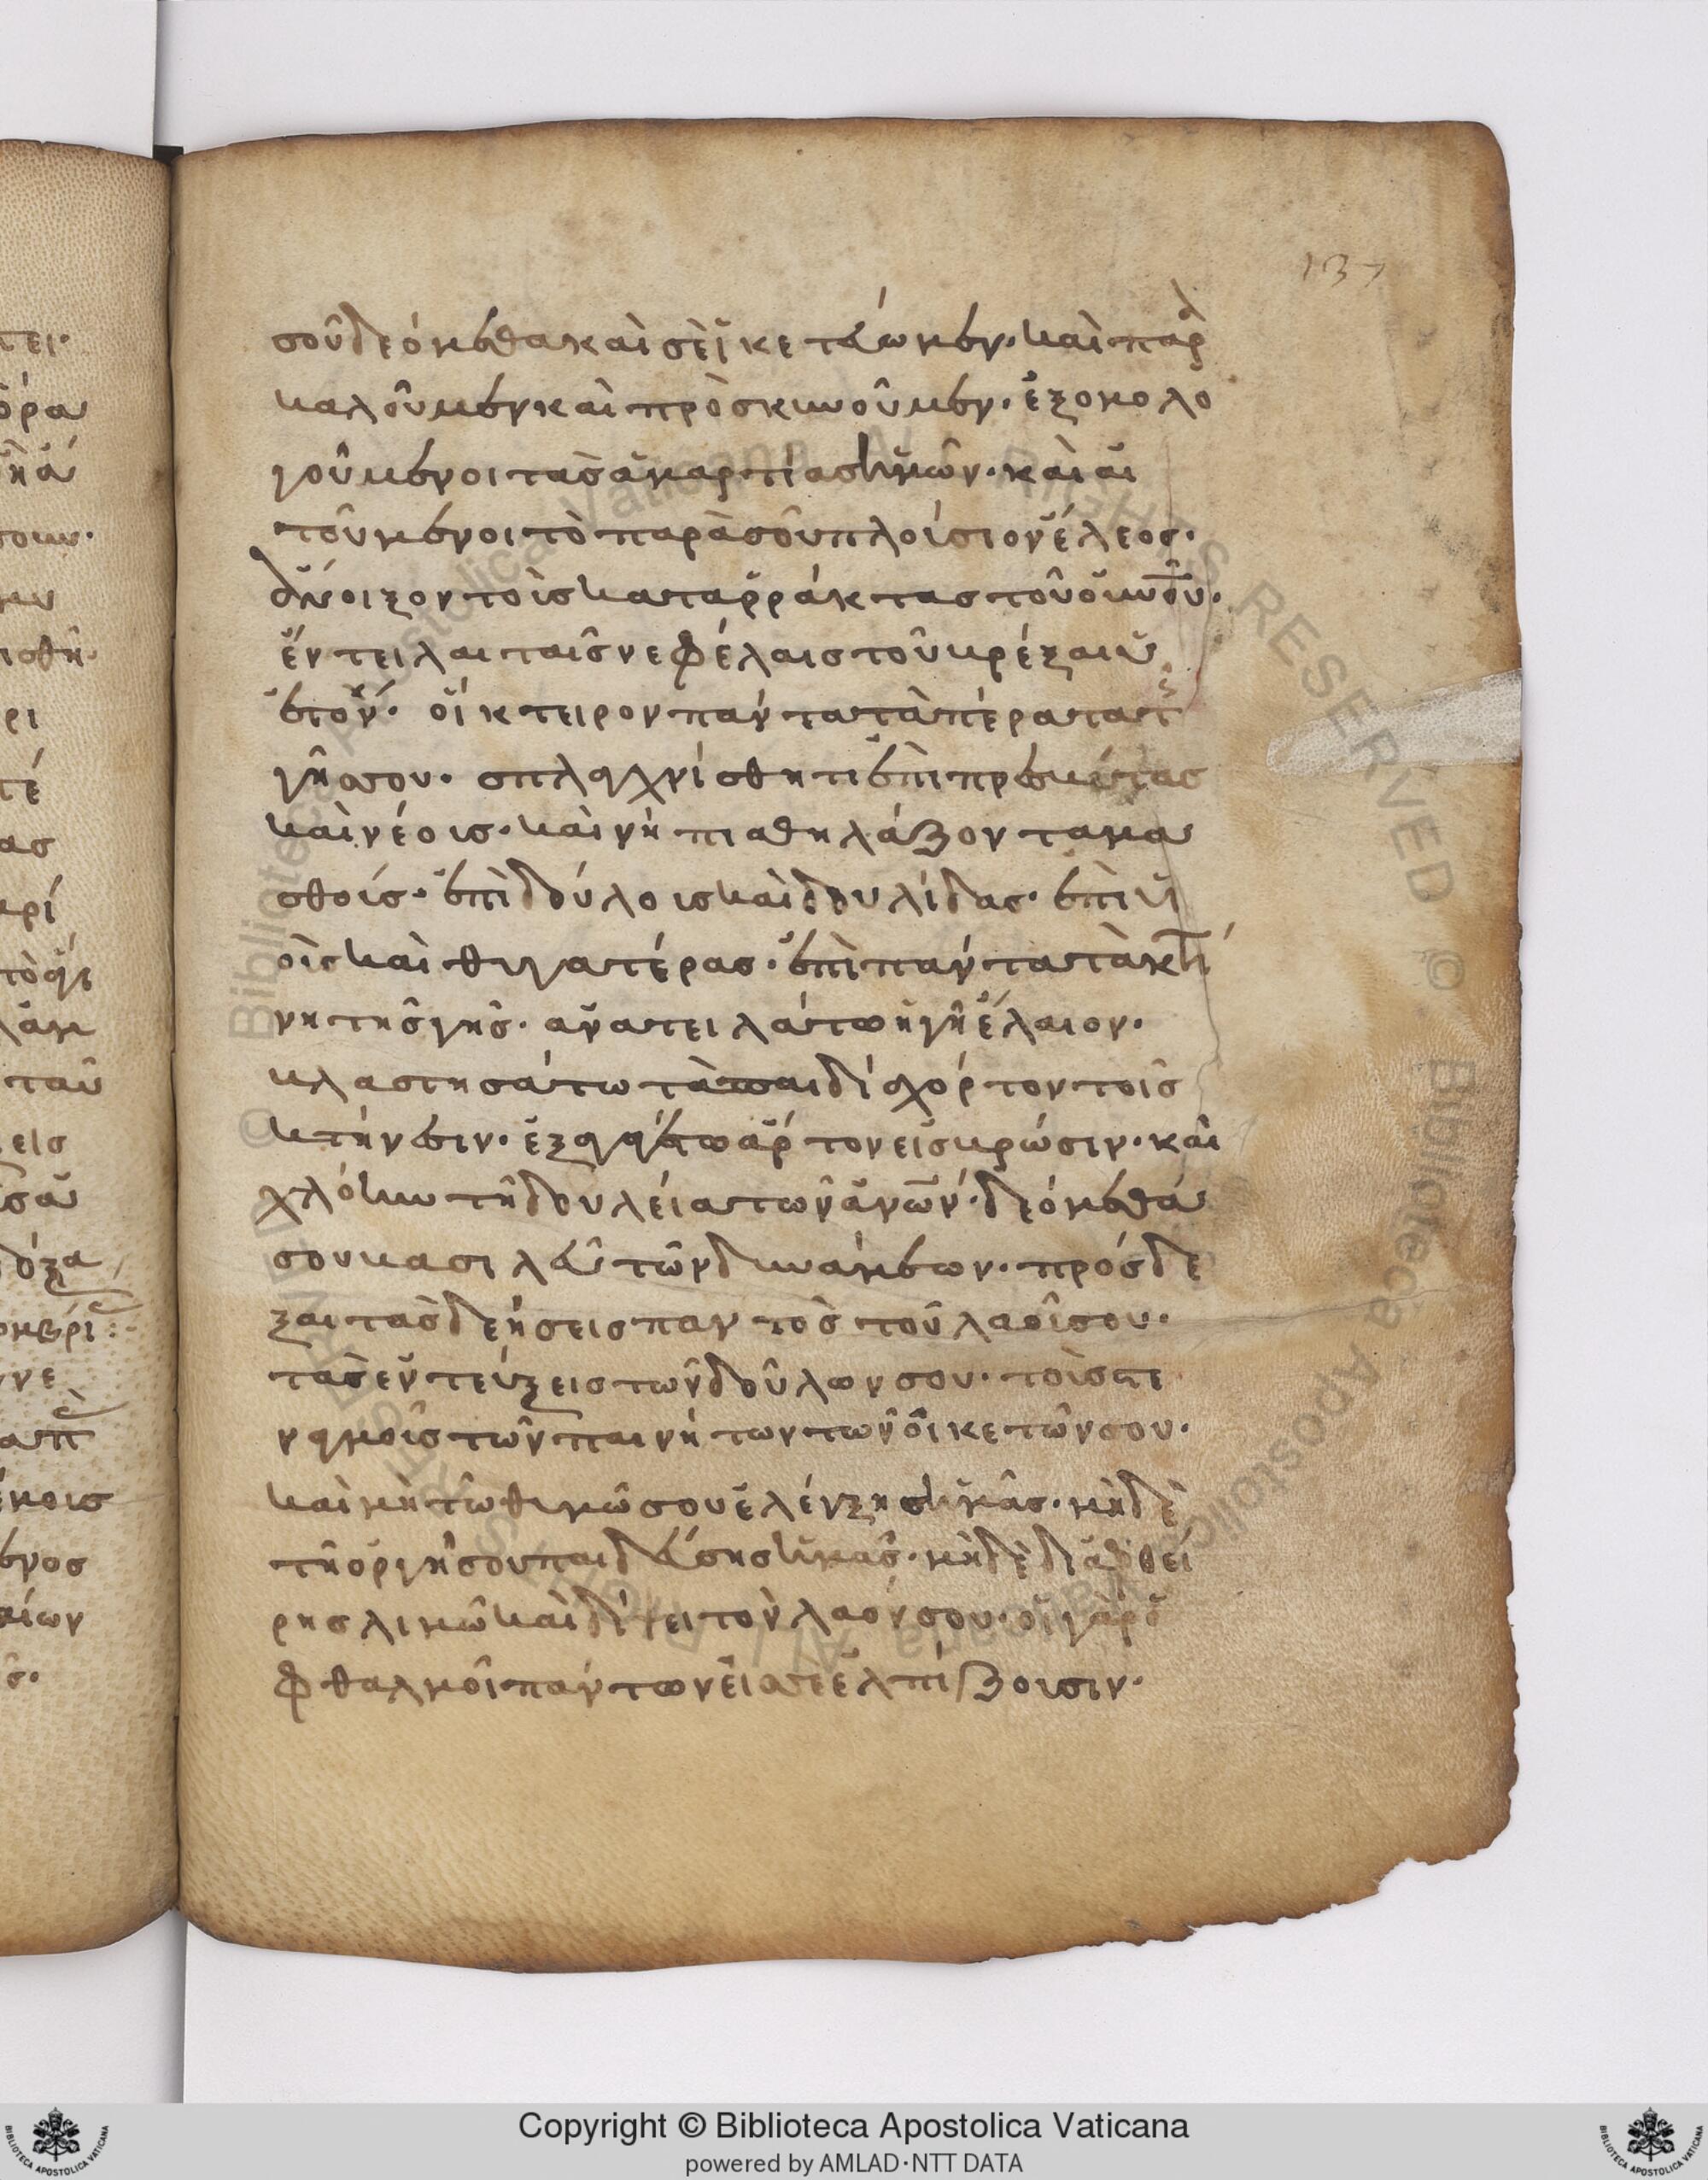 137
σοῦ δεόμεθα καὶ σὲ ἱκετεύωμεν· καὶ παρα
καλοῦμεν καὶ πρὸσκυνοῦμεν· ἐξομολο
γοῦμενοι τὰς ἁμαρτίας ἡμῶν· καὶ αἰ
τοῦμενοι τὸ παρὰ σοῦ πλοίσιον ἔλεος·
ἄνοιξον τοὶς καταρράκτας τοῦ οὐνοῦ·
ἔντειλαι ταῖς νεφέλαις τοῦ κρέξαι ὑ
ετόν· οἴκτειρον πάντα τὰ πέρατα τῆς
γῆς σου· σπλαχνίσθητι ἐπὶ πρεσκύτας
καὶ νέοις· καὶ νήπια θηλάζοντα μα
σθοίς· ἐπὶ δούλοις καὶ δουλίδας· ἐπὶ υἱ
οὶς καὶ θυγατέρας· ἐπὶ πάντα τὰ κτή
νη τῆς γῆς· ἀνατειλάτω ἡ γῆ ἔλαιον·
κλαστησάτω τὰ παιδία χόρτον τοῖς
κτήνεσιν· ἐξαγάγετω ἄρτον εἰς κρώσιν· καὶ
χλόην τῆ δουλεία τῶν ἀνων· δεόμεθά
σου κασιλεῦ τῶν δυνάμεων· πρόσδε
ξαι τὰς δεήσεις παντὸς τοῦ λαοῖ σου·
τὰς ἐντεύξεις τῶν δοῦλων σου· τοὶς στε
ναγμοῖς τῶν παινήτων τῶν οἰκετῶν σου·
καὶ μὴ τῶ θυμῶ σου ἐλένξης ἡμᾶς· μηδὲ
τῆ ὀργῆ σου παιδεύσης ἡμᾶς· μηδὲ διαφθεί
ρης λιμῶ καὶ δίψει τὸν λαόν σου· οἱ γὰρ ὀ
φθαλμοῖ πάντων εἰς σὲ ἐλπίζουσιν·
Copyright © Biblioteca Apostolica Vaticana
powered by AMLAD·NTT DATA